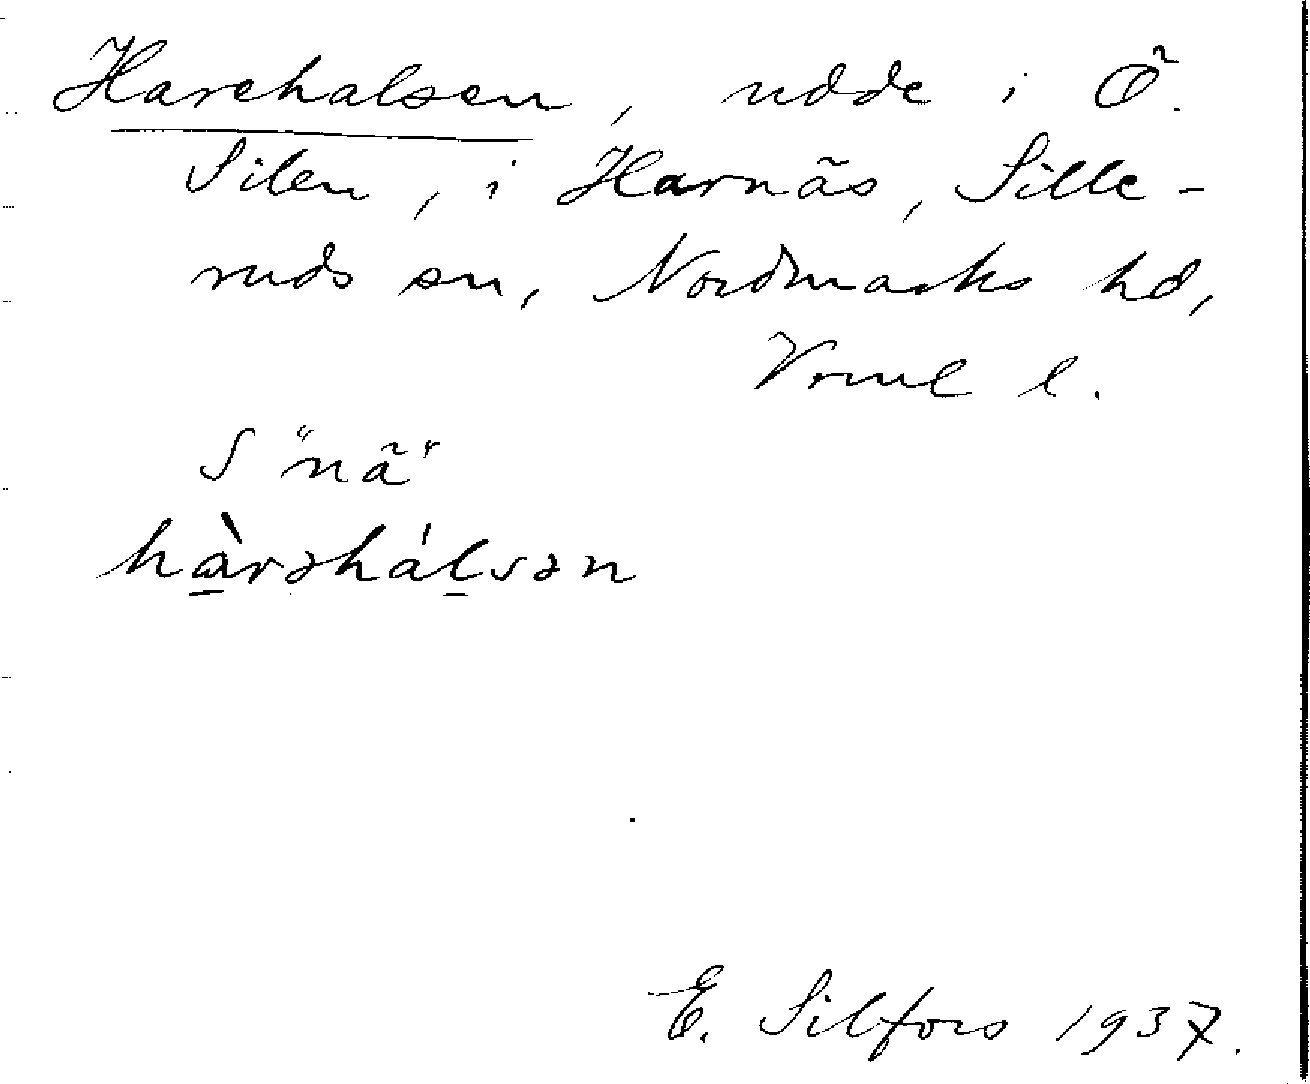 Harehalsen, udde i Ö.
Silen, i Harnäs, Sille-
ruds sn, Nordmarks hd,
Vrml l.
S "nä"
hàrəhálsən
E. Silfors 1937.